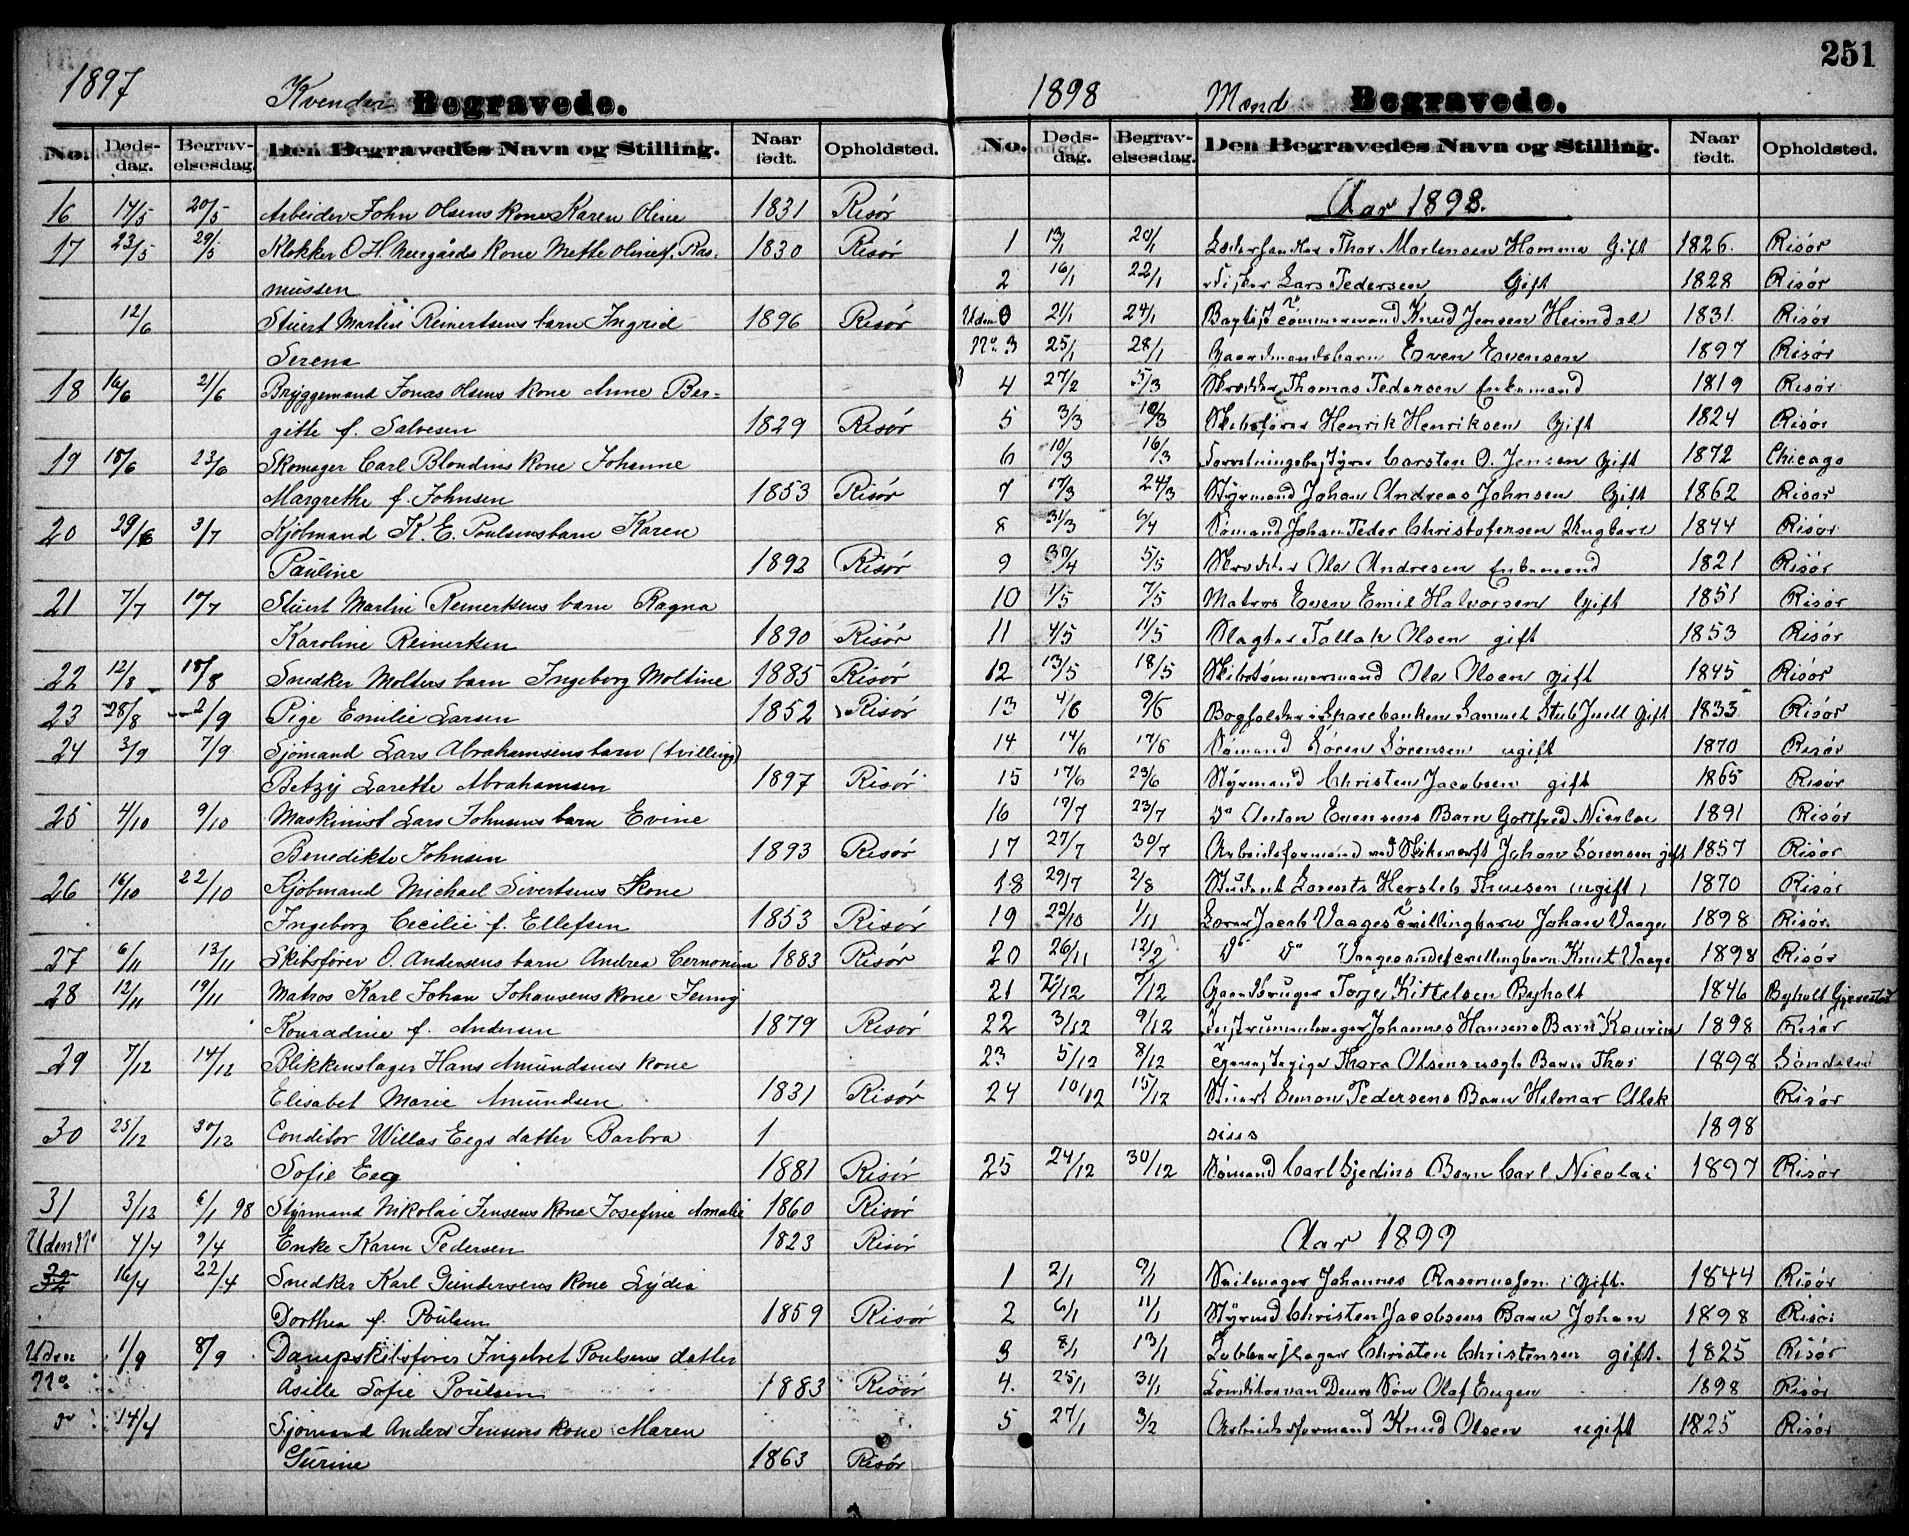 251
1897 Kvender Begravede.
No. Døds-dag. Begrav-elsesdag. Den Begravedes Navn og Stilling. Naar født. Opholdsted.
16 17/5 20/5 Arbeider John Olsens kone Karen Oline 1831 Risør
17 23/5 29/5 Klokker O. H. Neergårds kone Mette Oline f. Ras- 1830 Risør
mussen
12/6 Stuert Martin Reinertsens barn Ingrid 1896 Risør
Serena
18 16/6 21/6 Bryggemand Jonas Olsens kone Anne Ber-
gitte f. Salvesen 1829 Risør
19 18/6 23/6 Skomager Carl Blondins kone Johanne
Margrethe f. Johnsen 1853 Risør
20 29/6 3/7 Kjøbmand K. E. Poulsens barn Karen
Pauline 1892 Risør
21 7/7 10/7 Stuert Martin Reinertsens barn Ragna
Karoline Reinertsen 1890 Risør
22 12/8 18/8 Snedker Moltens barn Ingeborg Moltine 1885 Risør
23 28/8 2/9 Pige Emilie Larsen 1852 Risør
24 3/9 7/9 Sjømand Lars Abrahamsens barn (tvilling)
Betzy Larette Abrahamsen 1897 Risør
25 4/10 9/10 Maskinist Lars Johnsens barn Evine
Benedikte Johnsen 1893 Risør
26 16/10 22/10 Kjøbmand Michael Sivertsens kone
Ingeborg Cecilie f. Ellefsen 1853 Risør
27 6/11 13/11 Skibsfører O. Andersens barn Andrea 1883 Risør
28 12/11 19/11 Matros Karl Johan Johansens kone Jenny
Konradine f. Andersen 1879 Risør
29 7/12 14/12 Blikkenslager Hans Amundsens kone
Elisabet Marie Amundsen 1831 Risør
30 25/12 30/12 Conditor Willas Eegs datter Barbra 1
Sofie Eeg 1881 Risør
31 3/12 6/1 98 Styrmand Nikolai Jensens kone Josefine Amalie 1860 Risør
Uden No 4/4 9/4 Enke Karen Pedersen 1823 Risør
32 16/4 22/4 Snedker Karl Gundersens kone Lydia
Dorthea f. Poulsen 1859 Risør
Uden 1/9 8/9 Dampskibsfører Ingebret Poulsens datter
No. Åsille Sofie Poulsen 1883 Risør
do 14/4 Sjømand Anders Jensens kone Maren
Gurine 1863 Risør
1898 Mænd Begravede.
No. Døds-dag. Begrav-elsesdag. Den Begravedes Navn og Stilling. Naar født. Opholdsted.
Aar 1898.
1 13/1 20/1 Thor Mortensen Homme Gift 1826. Risør
2 16/1 22/1 Fisker Lars Pedersen Gift 1828 Risør
Uden 21/1 24/1 Baptist Tømmermand Knud Jensen Heimdal 1831. Risør
No. 3 25/1 28/1 Gaardmandsbarn Even Evensen 1897 Risør
4 27/2 5/3 Skrædder Thomas Pedersen Enkemand 1819 Risør
5 3/3 10/3 Skibsfører Henrik Henriksen Gift 1824 Risør
6 10/3 16/3 Forretningsbestyrer Carsten O. Jensen Gift 1872 Chicago
7 17/3 24/3 Styrmand Johan Andreas Johnsen Gift 1862 Risør
8 31/3 6/4 Sømand Johan Peder Christofersen Ungkarl 1844 Risør
9 30/4 5/5 Skrædder Ole Andresen Enkemand 1821 Risør
10 1/5 7/5 Matros Even Emil Halvorsen Gift 1851 Risør
11 4/5 11/5 Slagter Tallak Olsen gift 1853 Risør
12 13/5 18/5 Skibstømmermand Ole Olsen gift 1845 Risør
13 4/6 9/6 Bogholder i Sparebanken Samuel Stub Juell Gift 1833 Risør
14 14/6 17/6 Sømand Søren Sørensen ugift 1870 Risør
15 17/6 23/6 Styrmand Christen Jacobsen gift 1865 Risør
16 19/7 23/7 do Anton Evensens Barn Gottfred Nicolai 1891 Risør
17 27/7 30/7 Arbeidsformand ved Skibsværft Johan Sørensen gift 1857 Risør
18 29/7 2/8 Student Lorents Hersleb Thuesen (ugift) 1870 Risør
19 22/10 1/11 Jacob Vaages Tvillingbarn Johan Vaage 1898 Risør.
20 26/11 12/2 do do Vaages andet Tvillingbarn Knut Vaage 1898 Risør
21 2/12 7/12 Gaardbruger Torje Kittelsen Byholt 1846 Byholt Gjerestad
22 3/12 9/12 Instrumentmager Johannes Hansens Barn Kaurin 1898 Risør
23 5/12 8/12 Tjenestepige Thora Olsens uægte Barn Thor 1898 Søndeled
24 10/12 15/12 Stuert Simon Pedersens Barn Helmar Alek Risør
sius 1898
25 24/12 30/12 Sømand Carl Gjedins Barn Carl Nicolai 1897 Risør
Aar 1899
1 2/1 9/1 Seilmager Johannes Rasmussen, gift. 1844 Risør
2 6/1 11/1 Styrmd Christen Jacobsens Barn Johan 1898 Risør
3 8/1 13/1 Kobberslager Christen Christensen gift. 1825 Risør
4. 25/1 31/1 Konditor van Deurs Søn Olaf Eugen 1898 Risør
5 27/1 3/2 Arbeidsformand Knud Olsen ugift 1825 Risør